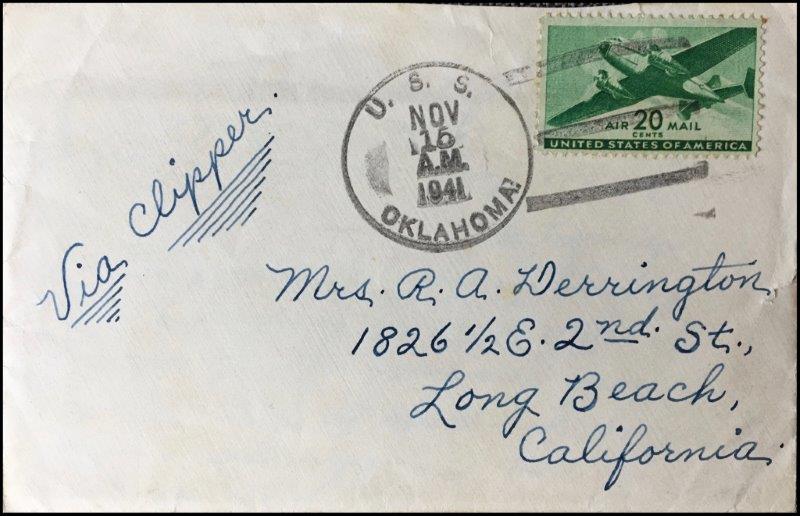 U. S. S.
NOV
15
A.M.
1941
OKLAHOMA
AIR 20 MAIL
CENTS
UNITED STATES OF AMERICA
Via Clipper
Mrs. R. A. Derrington,
1826 1/2 E. 2nd. St.,
Long Beach,
California.